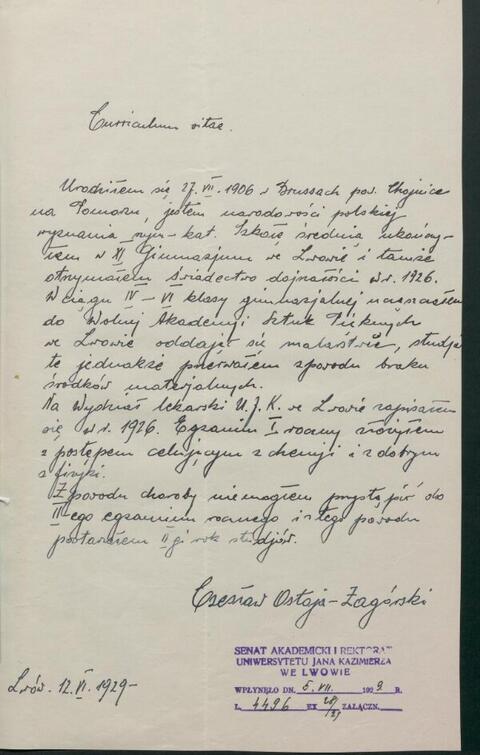 Curriculum vitae.
Urodziłem się 27.VII.1906 w Brussach pow. Chojnice
na Pomorzu, jestem narodowości polskiej
wyznania rzym-kat. Szkołę średnią ukończy-
łem w XI Gimnazjum we Lwowie i tamże
otrzymałem świadectwo dojrzałości w r. 1926.
W ciągu IV-VI klasy gimnazjalnej uczęszczałem
do Wolnej Akademji Sztuk Pięknych
we Lwowie oddając się malarstwu, studja
te jednakże przerwałem z powodu braku
środków materjalnych.
Na Wydział lekarski U.J.K. we Lwowie zapisałem
się w r. 1926. Egzamin I roczny złożyłem
z postępem celującym z chemji i z dobrym
z fizyki.
Z powodu choroby nie mogłem przystąpić do
II-ego egzaminu rocznego i z tego powodu
II gi rok studjów.
Czesław Ostoja-Zagórski
SENAT AKADEMICKI I REKTORAT
UNIWERSYTETU JANA KAZIMIERZA
WE LWOWIE
WPŁYNĘŁO DN. 5. VII. 1929 R.
L. 4496 EX 28/29 ZAŁĄCZN.
Lwów. 12.VI.1929-